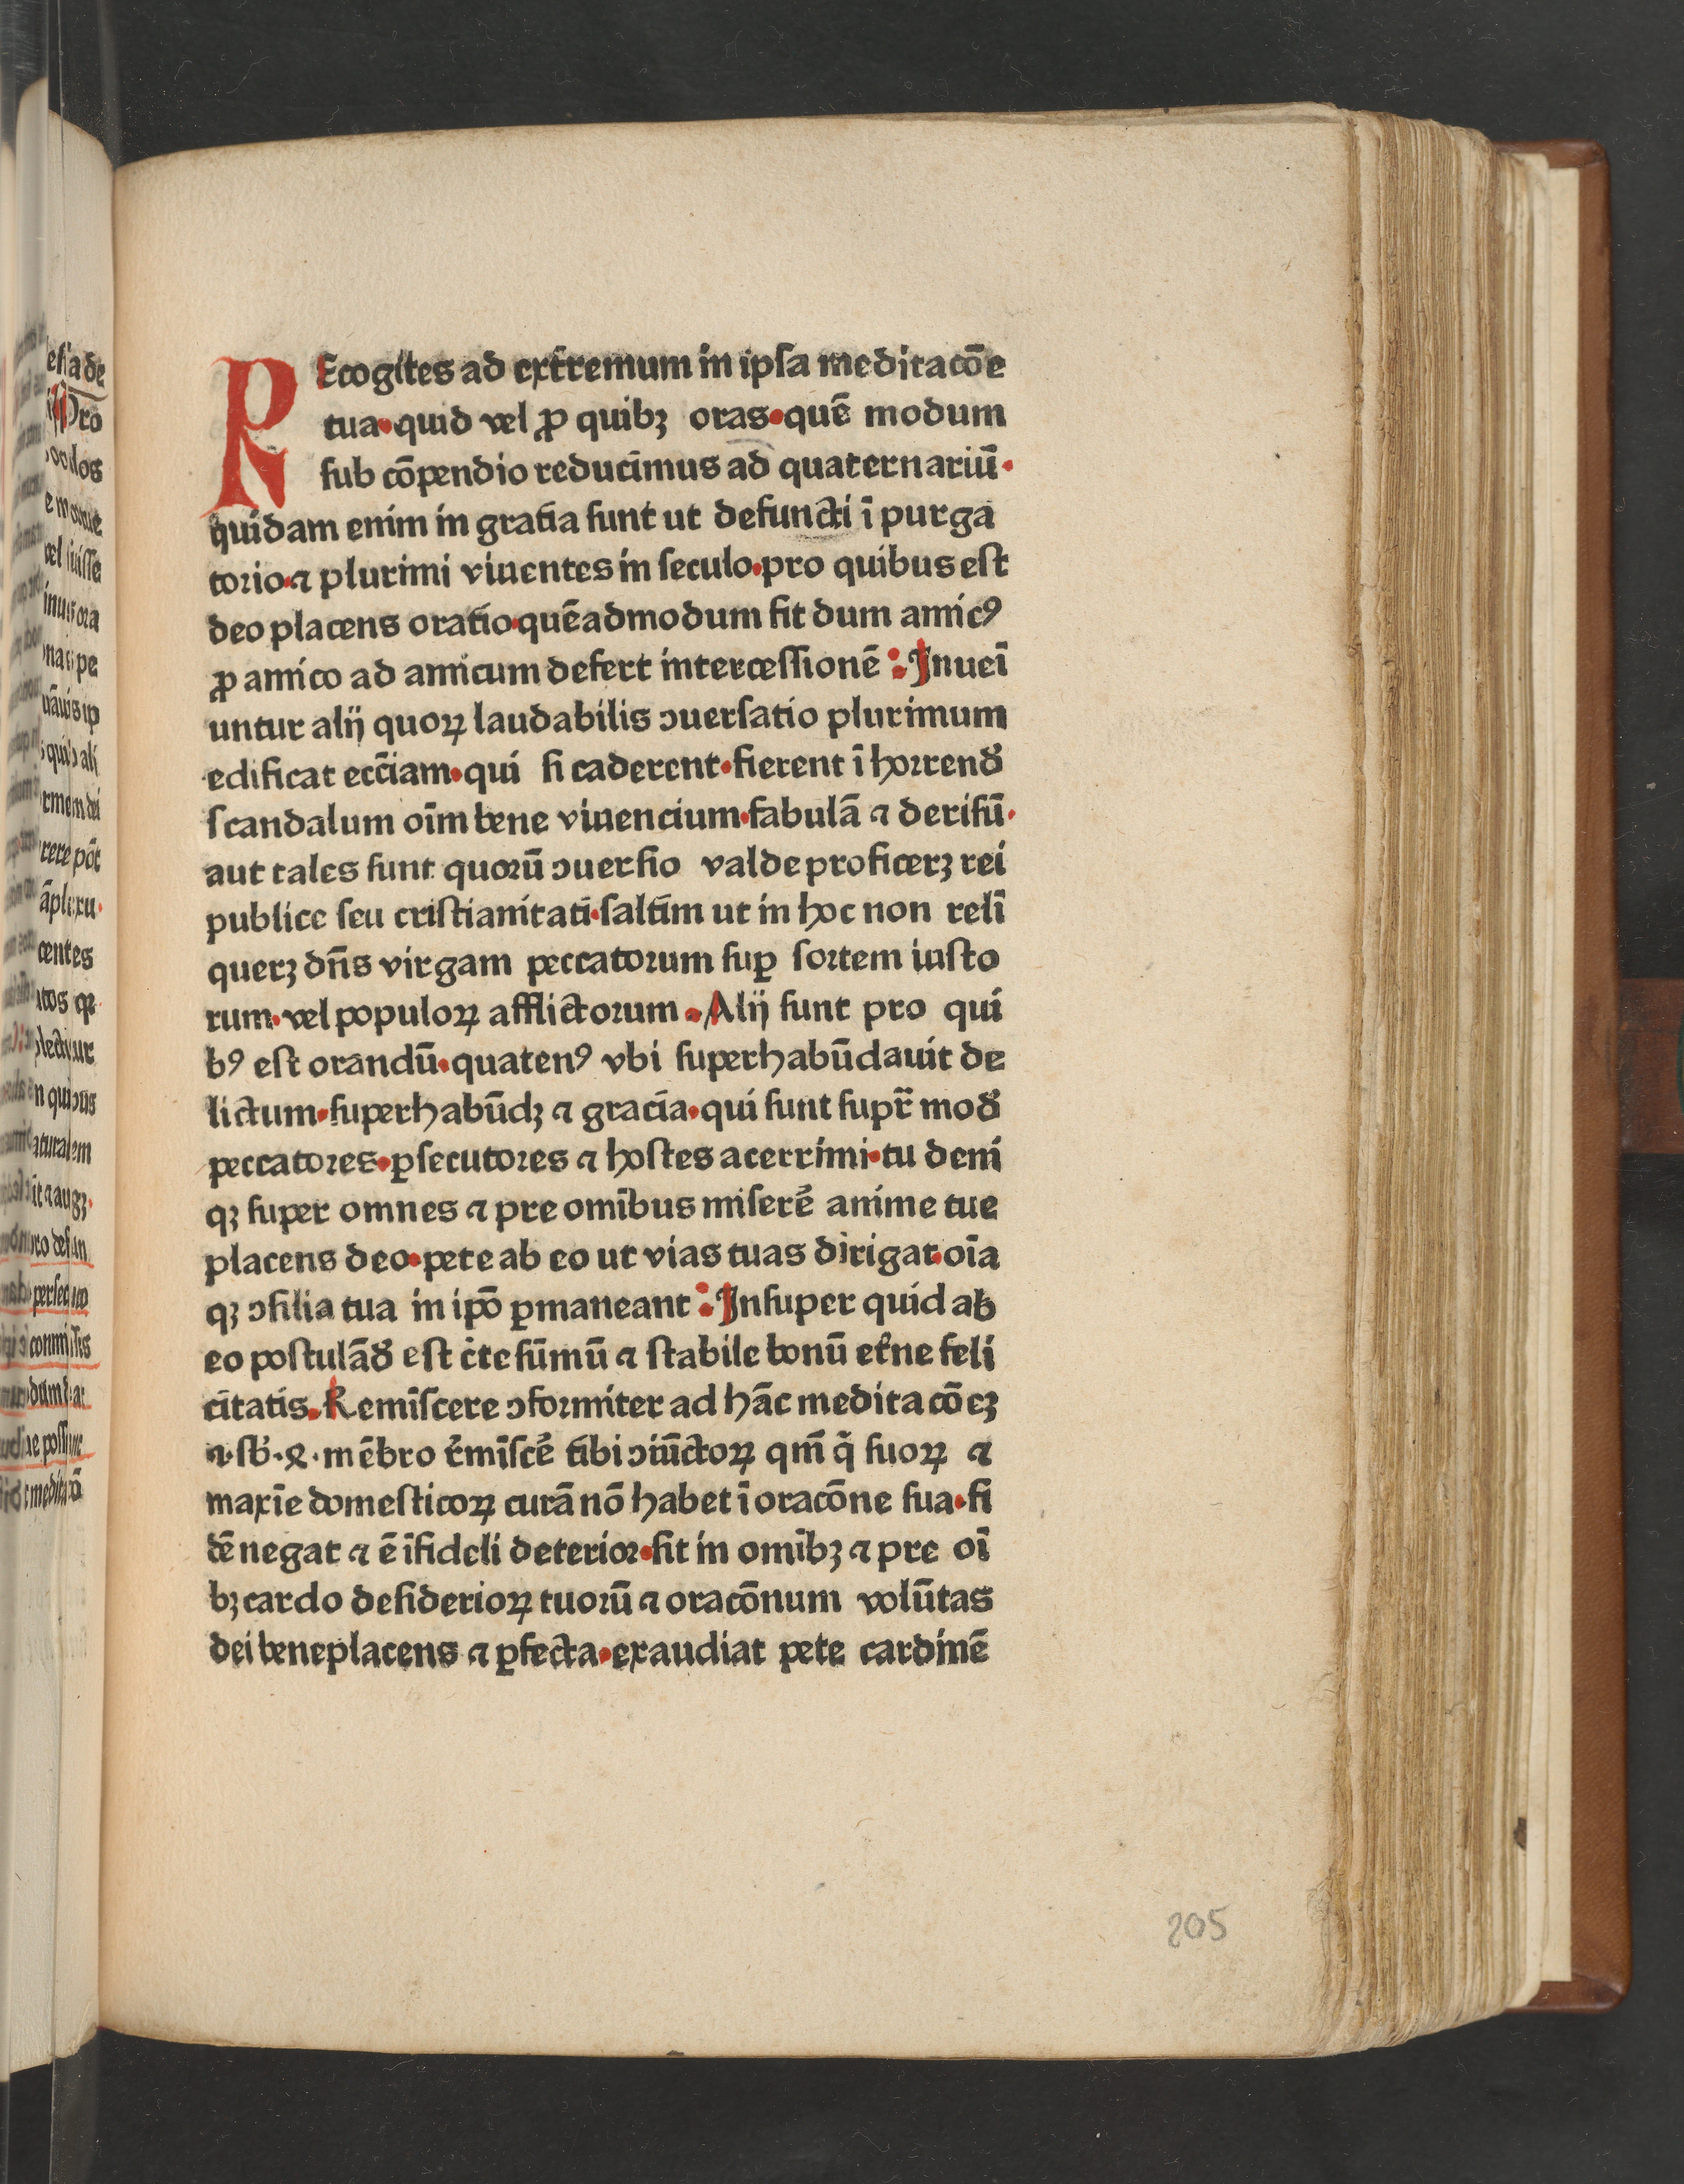 REcogites ad extremum in ipſa meditacōe
tua·quid vel ꝓ quibꝫ oras·quē modum
ſub cōpendio reducimus ad quaternariū·
quidam enim in gratia ſunt ut defuncti ī purga
torio·⁊ plurimi viuentes in ſeculo·pro quibus eſt
deo placens oratio·quēadmodum ſit dum amicꝰ
ꝓ amico ad amicum defert interceſſionē : Inueī
untur alij quoꝝ laudabilis ↄuerſatio plurimum
edificat ecc̄iam·qui ſi caderent·fierent ī horrend̛
ſcandalum oīm bene viuencium·fabulā ⁊ deriſū·
aut tales ſunt quorū ↄuerſio valde proficerꝫ rei
publice ſeu criſtianitati·ſaltim ut in hoc non relī
querꝫ dn̄s virgam peccatorum ſuꝑ ſortem iuſto
rum·vel populoꝝ afflictorum · Alij ſunt pro qui
bꝰ eſt orandū·quatenꝰ vbi ſuperhabūdauit de
lictum·ſuperhabūdꝫ ⁊ gracia·qui ſunt ſupr̄ mod̛
peccatores·ꝑſecutores ⁊ hoſtes acerrimi·tu deni
qꝫ ſuper omnes ⁊ pre omībus miſerē anime tue
placens deo·pete ab eo ut vias tuas dirigat·oīa
qꝫ ↄſilia tua in ip̄o ꝑmaneant : Inſuper quid ab
eo poſtulād̛ eſt c̄te ſūmū ⁊ ſtabile bonū et̄ne feli
citatis. Remīſcere ↄformiter ad hāc meditacōeꝫ
⁊·ſb̄·ꝝ·mēbro r̄miſcē tibi ↄiūctoꝝ qm̄ q̄ ſuoꝝ ⁊
maxīe domeſticoꝝ curā nō habet ī oracōne ſua·fi
dē negat ⁊ ē īfideli deterior·ſit in omībꝫ ⁊ pre oī
bꝫ cardo deſiderioꝝ tuorū ⁊ oracōnum volūtas
dei beneplacens ⁊ ꝑfecta·exaudiat pete cardinē
205